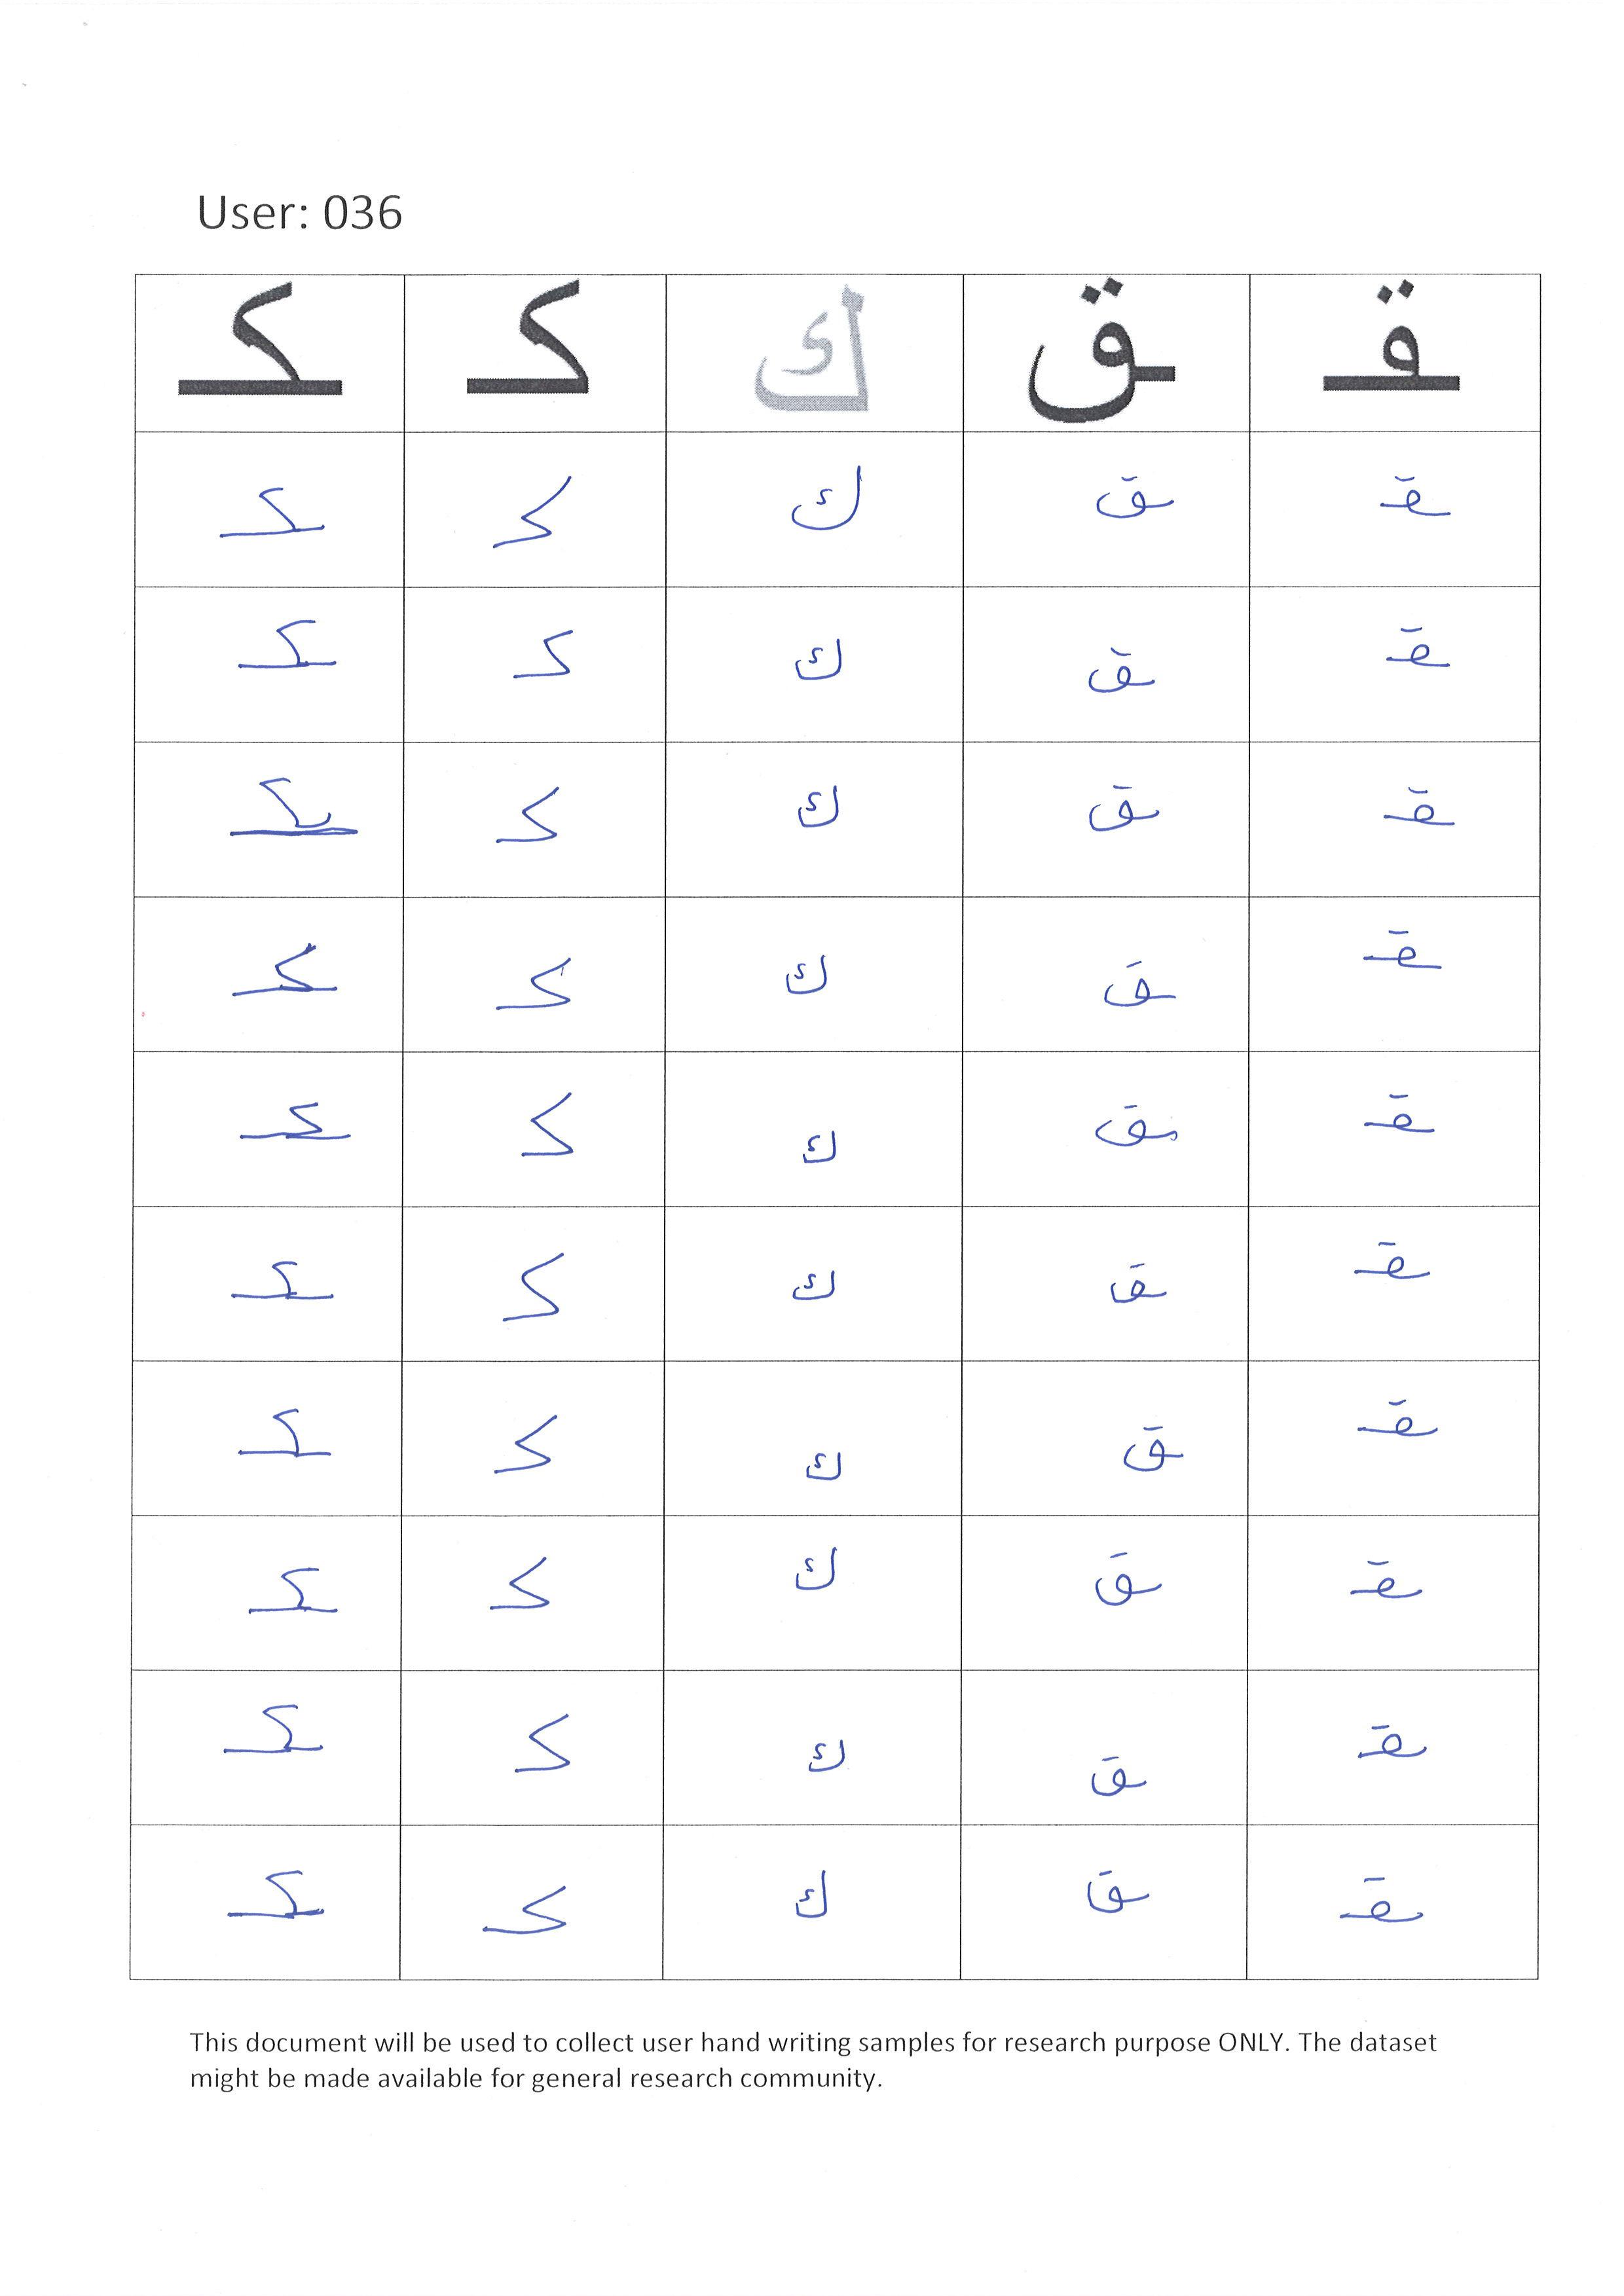 User: 036
ـقـ ـق ك كـ ـكـ
ـقـ ـق ك كـ ـكـ
ـقـ ـق ك كـ ـكـ
ـقـ ـق ك كـ ـكـ
ـقـ ـق ك كـ ـكـ
ـقـ ـق ك كـ ـكـ
ـقـ ـق ك كـ ـكـ
ـقـ ـق ك كـ ـكـ
ـقـ ـق ك كـ ـكـ
ـقـ ـق ك كـ ـكـ
ـقـ ـق ك كـ ـكـ
This document will be used to collect user hand writing samples for research purpose ONLY. The dataset
might be made available for general research community.